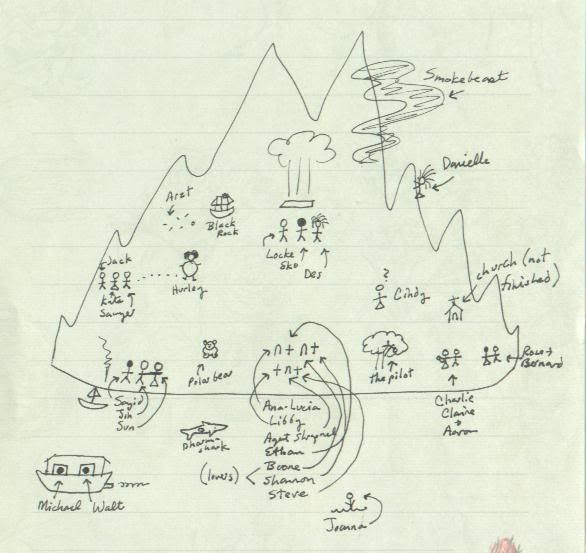 Smokebeast
Danielle
Arzt
Black
Rock
Locke
Eko
Des
Jack
Kate
Sawyer
Hurley
?
Cindy
church (not
finished)
Polar bear
the pilot
Rose +
Bernard
Sayid
Jin
Sun
Charlie
Claire
+
Aaron
Dharma
shark
Ana-Lucia
Libby
Ethan
Boone
(lovers)
Shannon
Steve
Michael Walt
Joanna